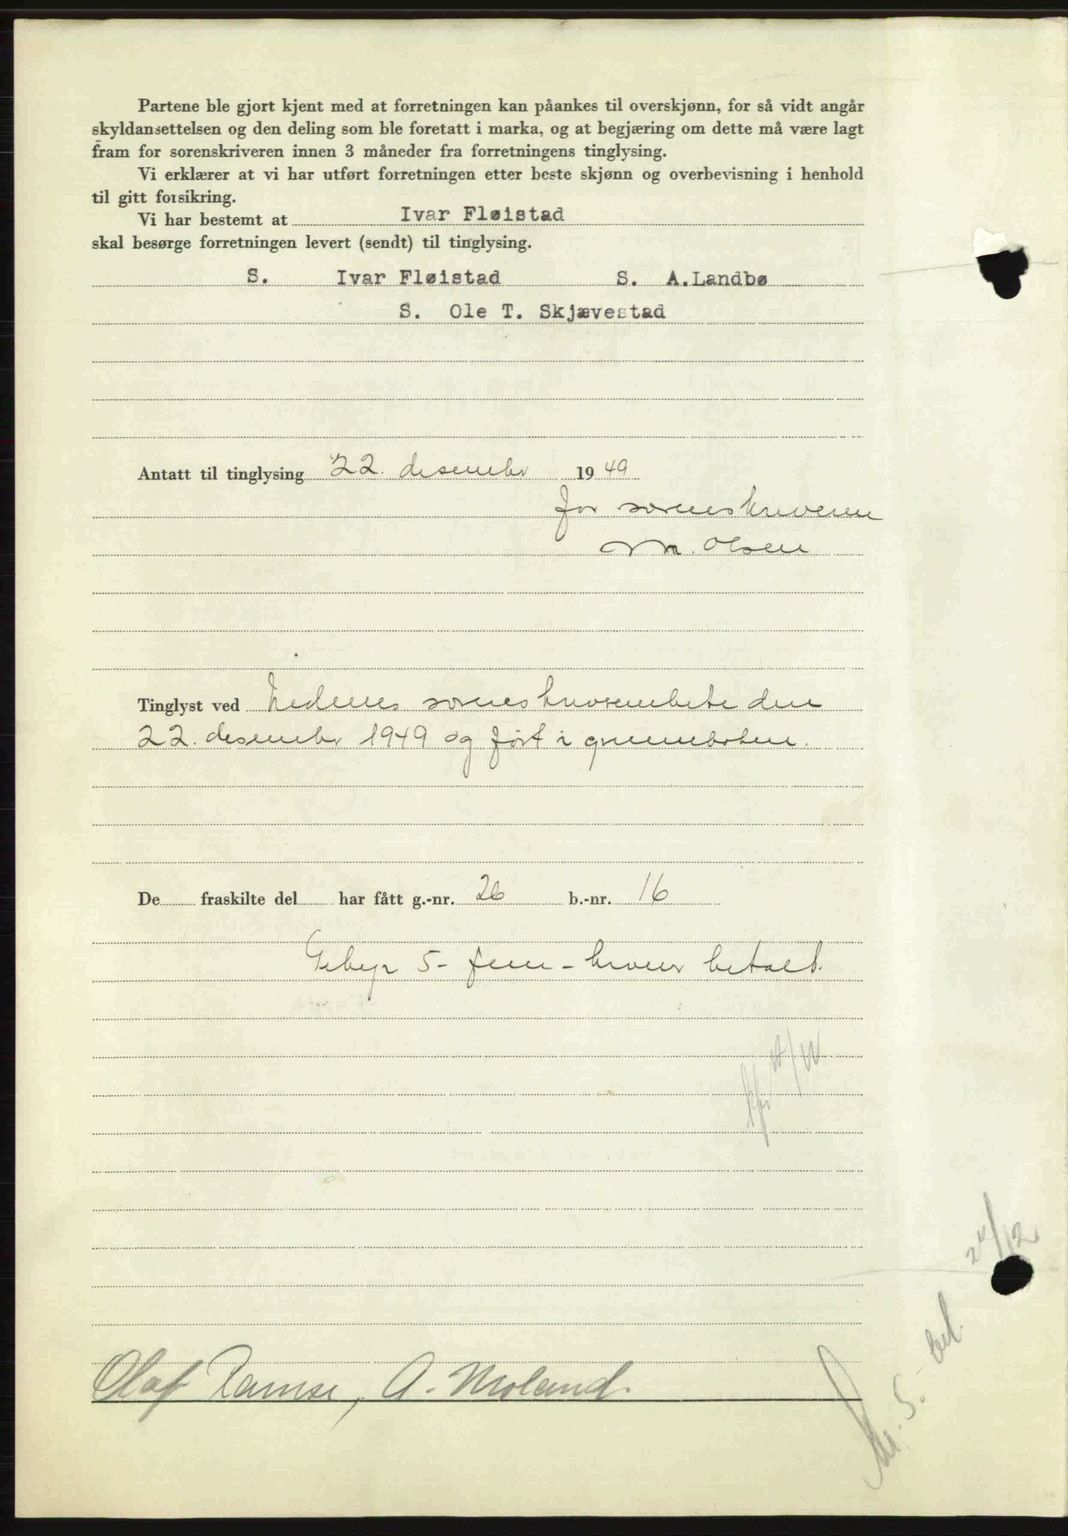 Partene ble gjort kjent med at forretningen kan påankes til overskjønn, for så vidt angår
skyldansettelsen og den deling som ble foretatt i marka, og at begjæring om dette må være lagt
fram for sorenskriveren innen 3 måneder fra forretningens tinglysing.
Vi erklærer at vi har utført forretningen etter beste skjønn og overbevisning i henhold
til gitt forsikring.
Vi har bestemt at Ivar Fløistad
skal besørge forretningen levert (sendt) til tinglysing.
S. Ivar Fløistad S. A.Landbø
S. Ole T. Skjævestad
Antatt til tinglysing 22. desember 1949
for sorenskriveren
M. Olsen
Tinglyst ved Nedenes sorenskriverembete den
22. desember 1949 og ført i grunnboken.
De fraskilte del har fått g.-nr. 26 b.-nr. 16
Gebyr 5- fem - kroner betalt.
24/12
bet
kr. 5.-
Olaf Ramse, A. Moland.